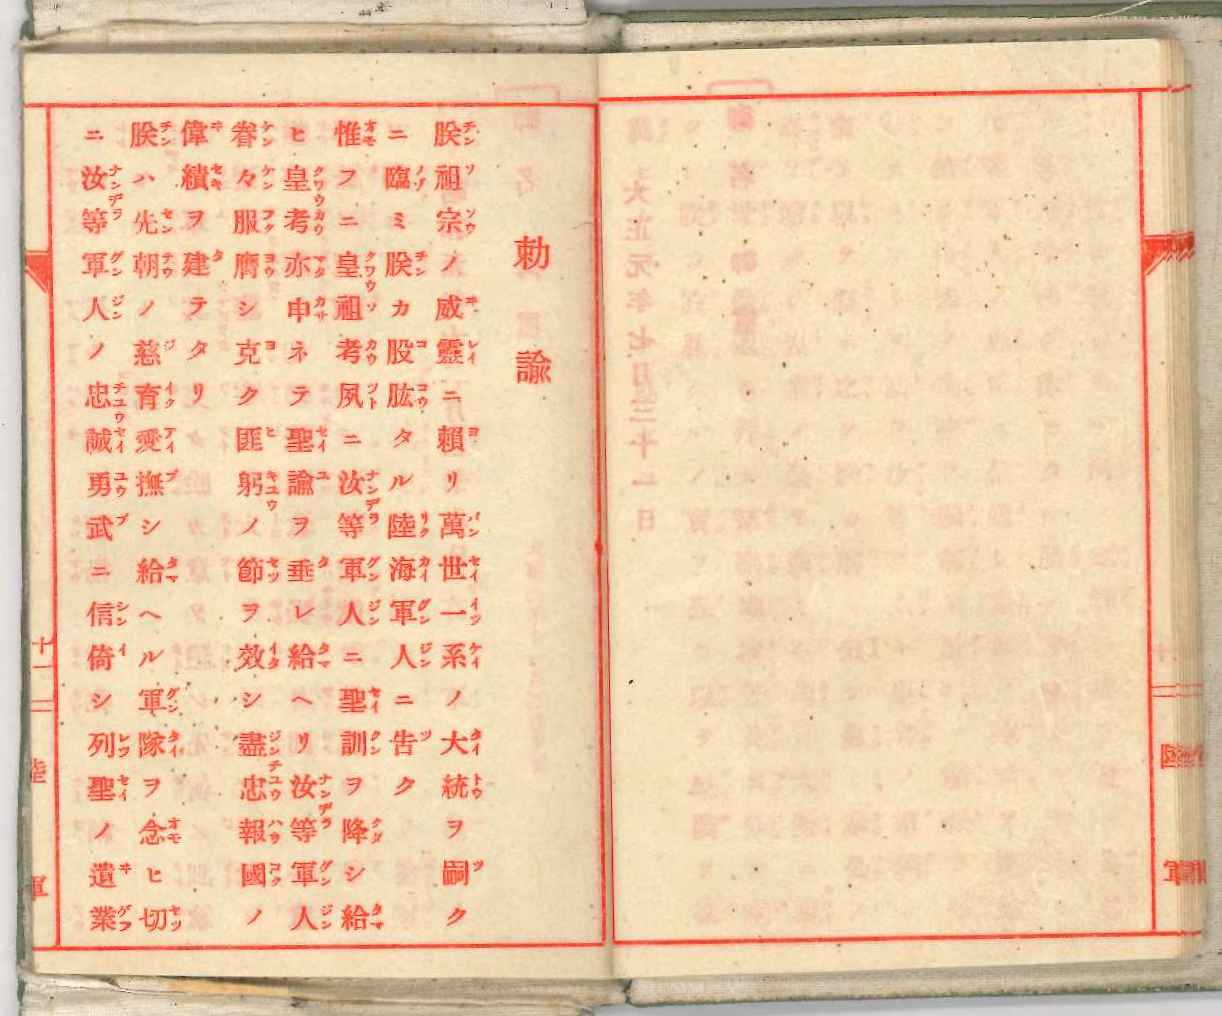 勅諭
朕祖宗ノ威靈ニ賴リ萬世一系ノ大統ヲ嗣ク
ニ臨ミ朕カ股肱タル陸海軍人ニ告ク
惟フニ皇祖考夙ニ汝等軍人ニ聖訓ヲ降シ給
ヒ皇考亦申ネテ聖諭ヲ垂レ給ヘリ汝等軍人
眷々服膺シ克ク匪躬ノ節ヲ效シ盡忠報國ノ
偉績ヲ建テタリ
朕ハ先朝ノ慈育愛撫シ給ヘル軍隊ヲ念ヒ切
ニ汝等軍人ノ忠誠勇武ニ信倚シ列聖ノ遺業
十一
陸軍